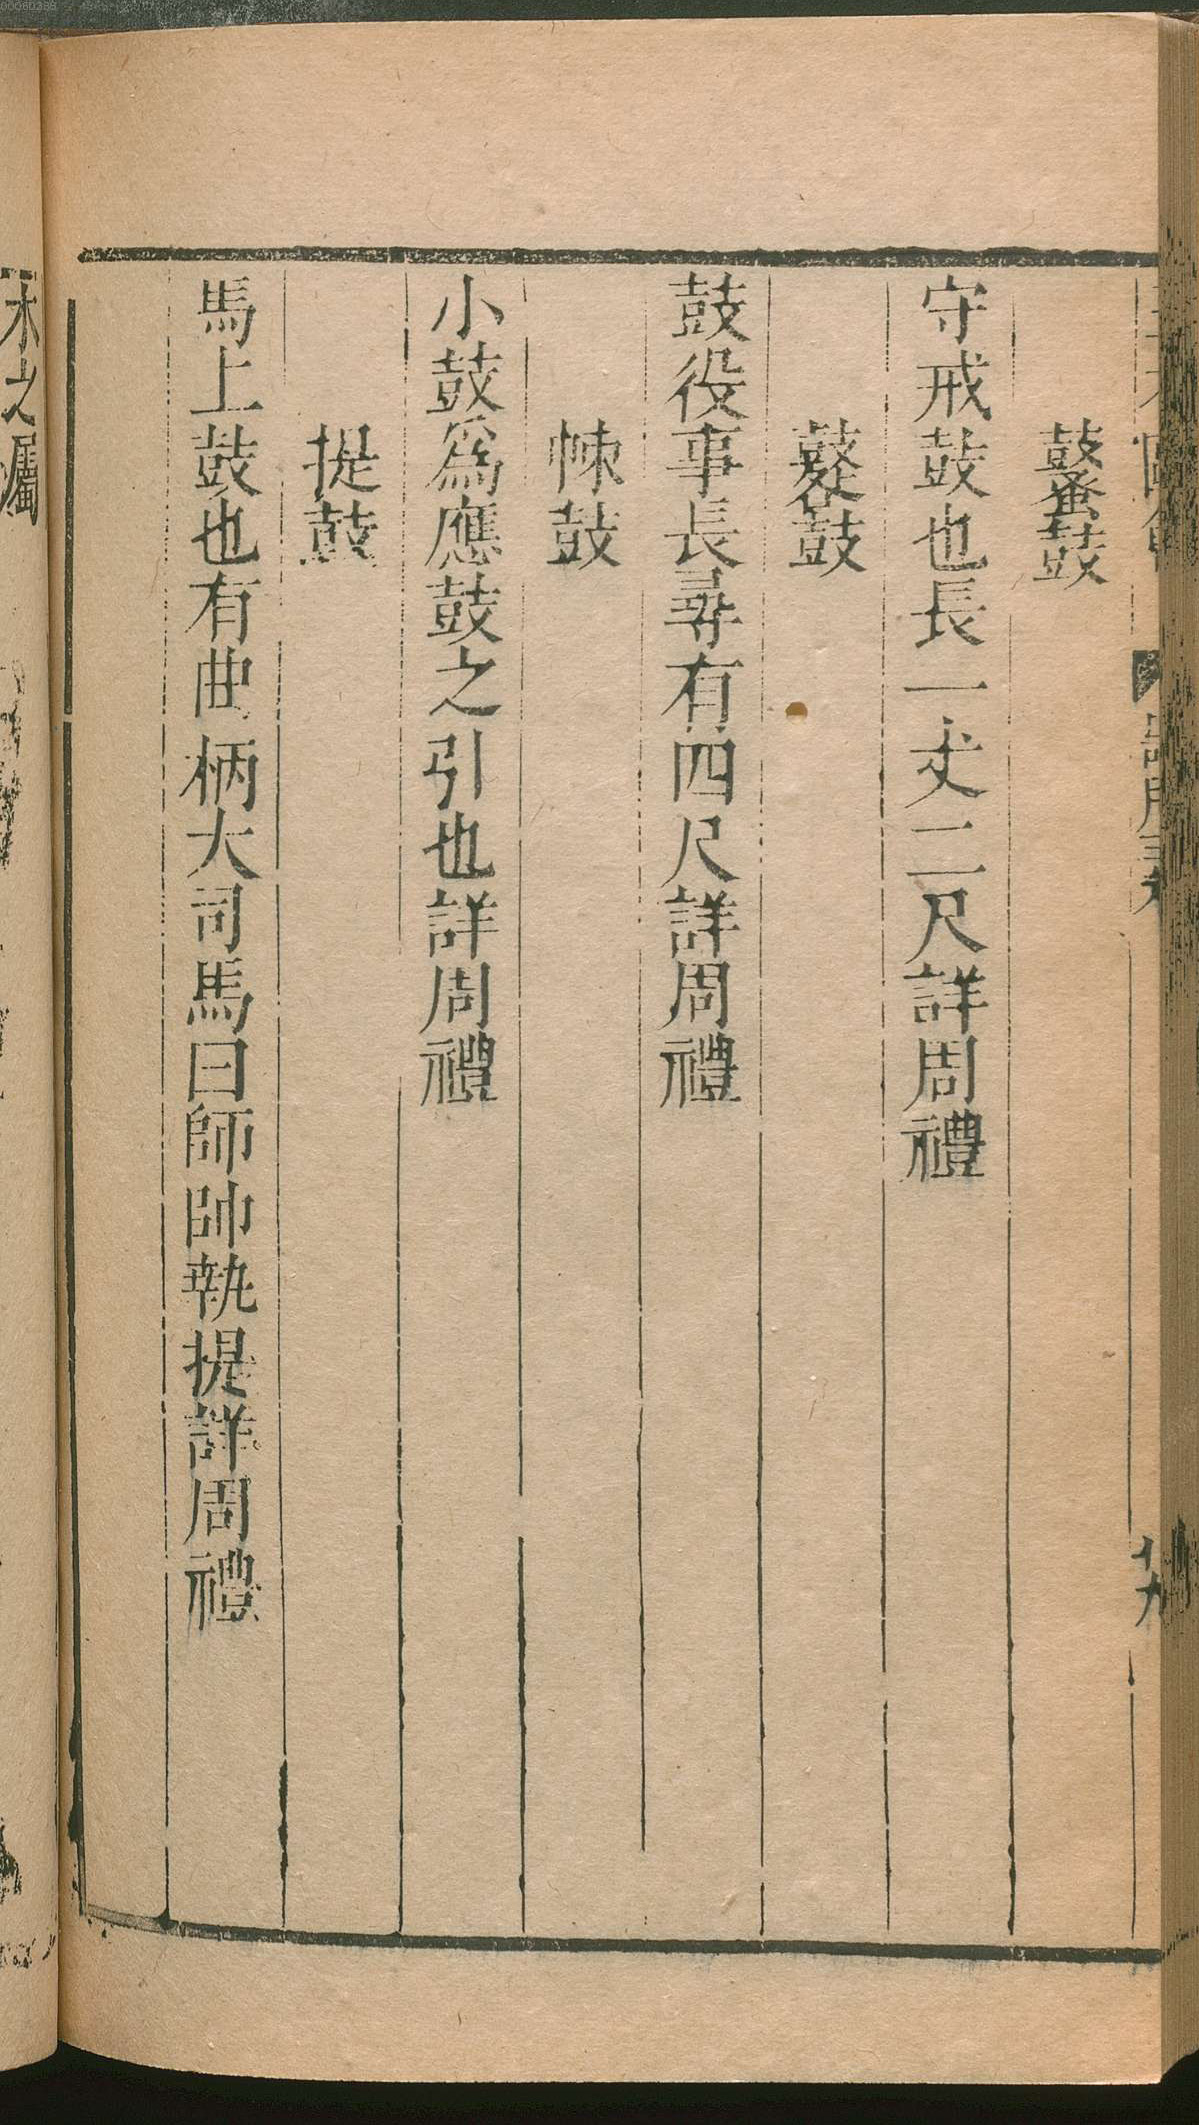 鼜鼓
守戒鼓也長一丈二尺詳周禮
鼛鼓
鼓役事長尋有四尺詳周禮
悚鼓
小鼓爲應鼓之引也詳周禮
提鼓
馬上鼓也有曲柄大司馬曰師帥執提詳周禮